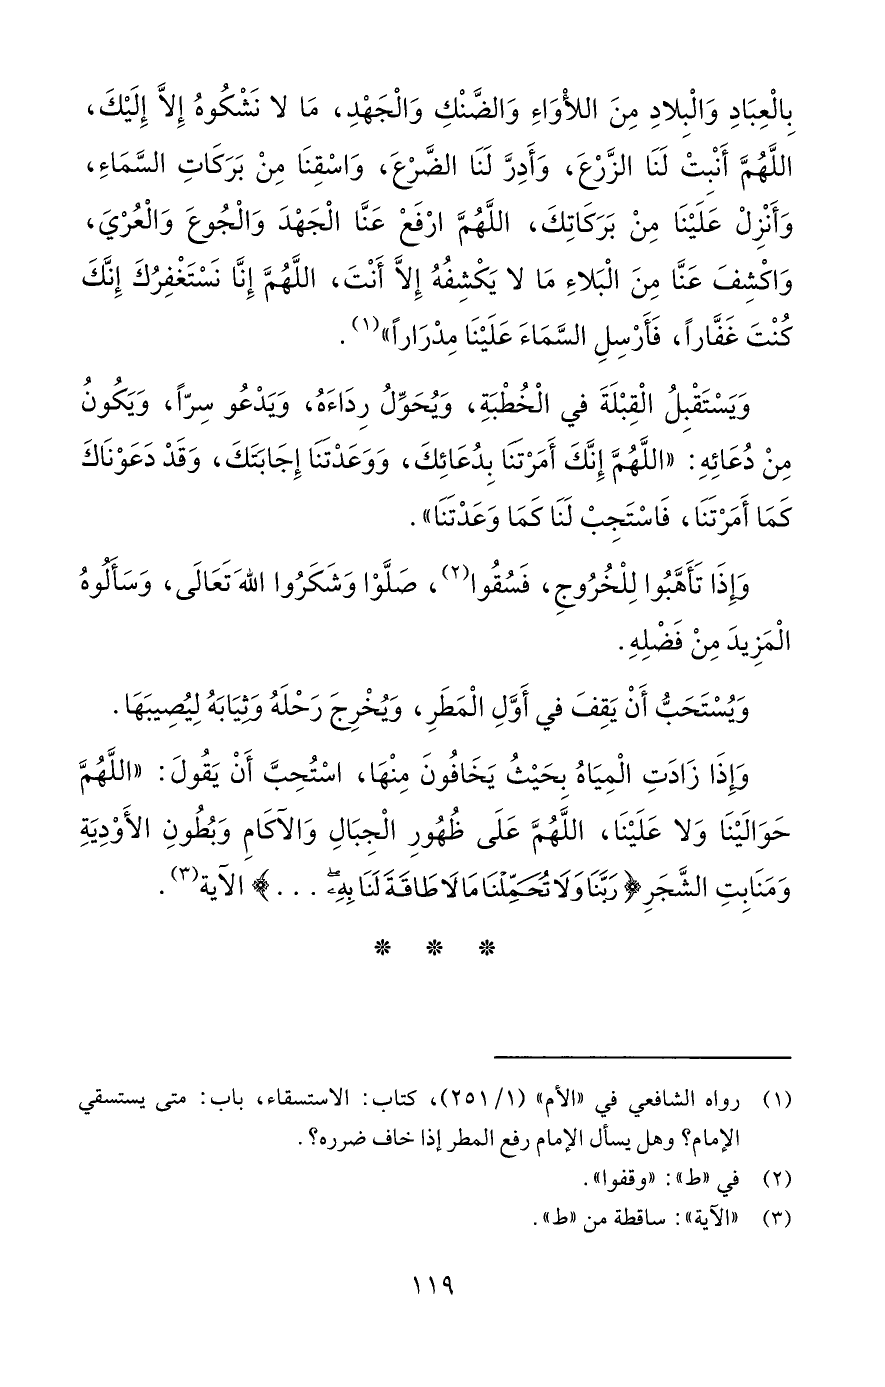 بِالْعِبَادِ وَالْبِلادِ مِنَ اللأْوَاءِ وَالضَّنْكِ وَالْجَهْدِ، مَا لا نَشْكُوهُ إِلاَّ إِلَيْكَ،
اللَّهُمَّ أَنْبِتْ لَنَا الزَّرْعَ، وَأَدِرَّ لَنَا الضَّرْعَ، وَاسْقِنَا مِنْ بَرَكَاتِ السَّمَاءِ،
وَأَنْزِلْ عَلَيْنَا مِنْ بَرَكَاتِكَ، اللَّهُمَّ ارْفَعْ عَنَّا الْجَهْدَ وَالْجُوعَ وَالْعُرْيَ،
وَاكْشِفَ عَنَّا مِنَ الْبَلاءِ مَا لا يَكْشِفُهُ إِلاَّ أَنْتَ، اللَّهُمَّ إِنَّا نَسْتَغْفِرُكَ إِنَّكَ
كُنْتَ غَفَّاراً، فَأَرْسِلِ السَّمَاءَ عَلَيْنَا مِدْرَاراً»(١).
وَيَسْتَقْبِلُ الْقِبْلَةَ في الْخُطْبَةِ، وَيُحَوِّلُ رِدَاءَهُ، وَيَدْعُو سِرّاً، وَيَكُونُ
مِنْ دُعَائِهِ: «اللَّهُمَّ إِنَّكَ أَمَرْتَنَا بِدُعَائِكَ، وَوَعَدْتَنَا إِجَابَتَكَ، وَقَدْ دَعَوْنَاكَ
كَمَا أَمَرْتَنَا، فَاسْتَجِبْ لَنَا كَمَا وَعَدْتَنَا».
وَإِذَا تَأَهَّبُوا لِلْخُرُوجِ، فَسُقُوا(٢)، صَلَّوْا وَشَكَرُوا اللهَ تَعَالَى، وَسَأَلُوهُ
الْمَزِيدَ مِنْ فَضْلِهِ.
وَيُسْتَحَبُّ أَنْ يَقِفَ في أَوَّلِ الْمَطَرِ، وَيُخْرِجَ رَحْلَهُ وَثِيَابَهُ لِيُصِيبَهَا.
وَإِذَا زَادَتِ الْمِيَاهُ بِحَيْثُ يَخَافُونَ مِنْهَا، اسْتُحِبَّ أَنْ يَقُولَ: «اللَّهُمَّ
حَوَالَيْنَا وَلا عَلَيْنَا، اللَّهُمَّ عَلَى ظُهُورِ الْجِبَالِ وَالآكَامِ وَبُطُونِ الأَوْدِيَةِ
وَمَنَابِتِ الشَّجَرِ ﴿رَبَّنَا وَلَا تُحَمِّلْنَا مَا لَا طَاقَةَ لَنَا بِهِۦۖ ...﴾ الآية(٣).
* * *
(١) رواه الشافعي في «الأم» (١/ ٢٥١)، كتاب: الاستسقاء، باب: متى يستسقي
الإمام؟ وهل يسأل الإمام رفع المطر إذا خاف ضرره؟.
(٢) في «ط»: «وقفوا».
(٣) «الآية»: ساقطة من «ط».
١١٩